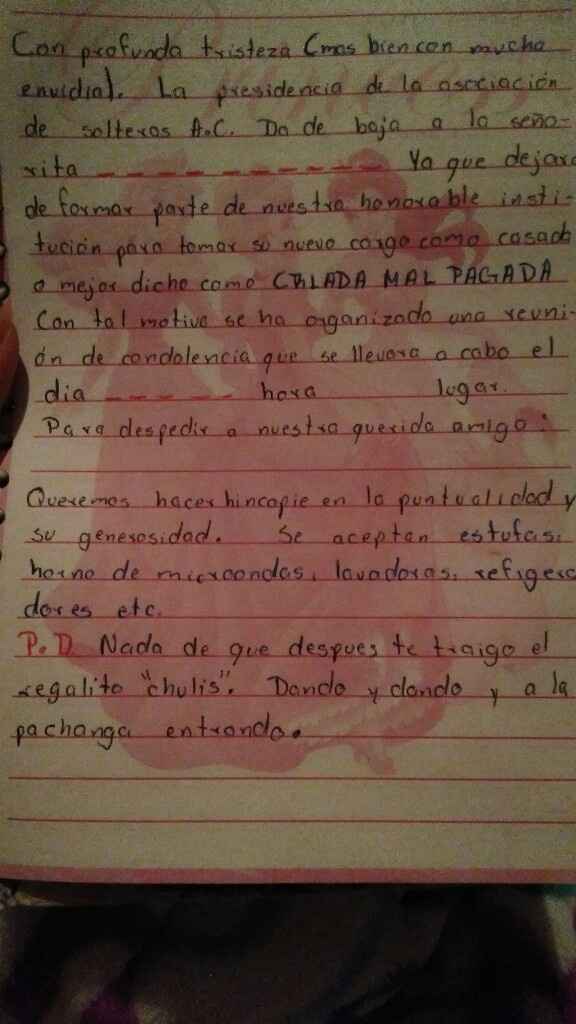 Con profunda tristeza (mas bien con mucha
envidia). La presidencia de la asociación
de solteros A.C. Da de baja a la seño-
rita _ _ _ _ _ _ _ _ _ _ _ Ya que dejara
de formar parte de nuestra honorable insti-
tución para tomar su nuevo cargo como casada
o mejor dicho como CRIADA MAL PAGADA
Con tal motivo se ha organizado una reuni-
ón de condolencia que se llevara a cabo el
dia _ _ _ _ _ hora lugar.
Para despedir a nuestra querida amiga:
Queremos hacer hincapie en la puntualidad y
su generosidad. Se aceptan estufas,
horno de microondas, lavadoras, refigera
dores etc.
P.D. Nada de que despues te traigo el
regalito "chulis". Dando y dando y a la
pachanga entrando.